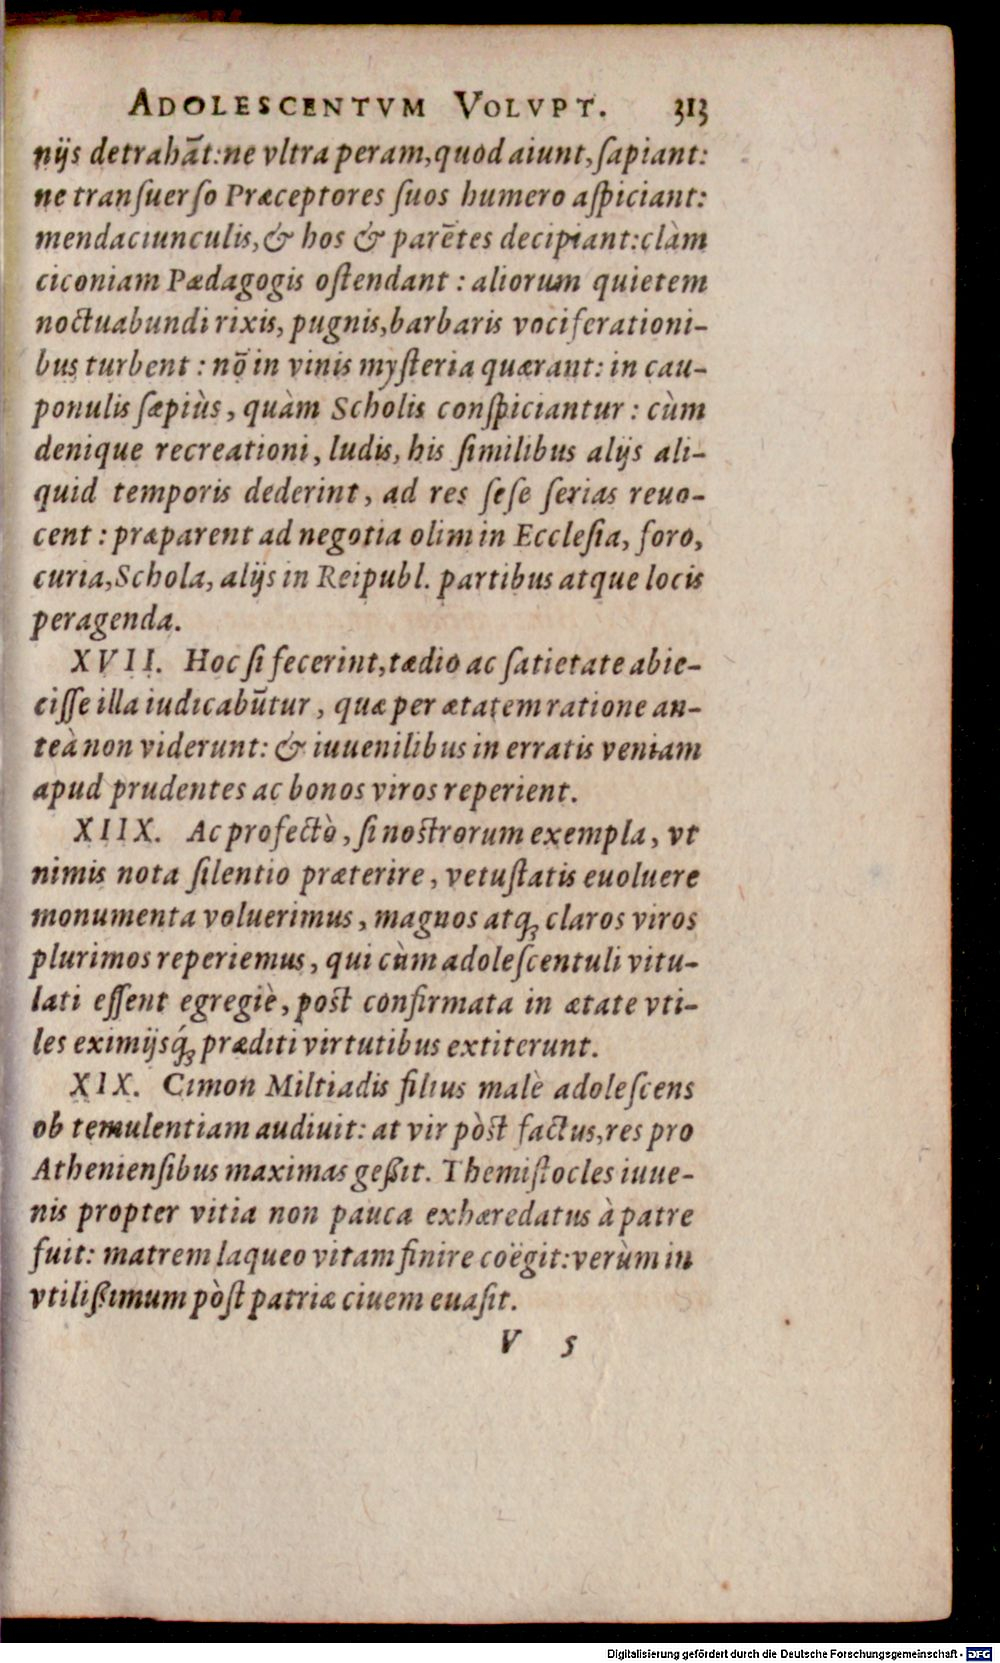 ADOLESCENTVM VOLVPT. 313
nijs detrahāt: ne vltra peram, quod aiunt, ſapiant:
ne tranſuerſo Præceptores ſuos humero aſpiciant:
mendaciunculis, & hos & parētes decipiant: clàm
ciconiam Pædagogis oſtendant : aliorum quietem
noctuabundi rixis, pugnis, barbaris vociferationi-
bus turbent : nō in vinis myſteria quærant: in cau-
ponulis ſæpiùs, quàm Scholis conſpiciantur : cùm
denique recreationi, ludis, his ſimilibus alijs ali-
quid temporis dederint, ad res ſeſe ſerias reuo-
cent : præparent ad negotia olim in Eccleſia, foro,
curia, Schola, alijs in Reipubl. partibus atque locis
peragenda.
XVII. Hoc ſi fecerint, tædio ac ſatietate abie-
ciſſe illa iudicabūtur, quæ per ætatem ratione an-
teà non viderunt: & iuuenilibus in erratis veniam
apud prudentes ac bonos viros reperient.
XIIX. Ac profectò, ſi noſtrorum exempla, vt
nimis nota ſilentio præterire, vetuſtatis euoluere
monumenta voluerimus, magnos atq; claros viros
plurimos reperiemus, qui cùm adoleſcentuli vitu-
lati eſſent egregiè, poſt confirmata in ætate vti-
les eximijsq́; præditi virtutibus extiterunt.
XIX. Cimon Miltiadis filius malè adoleſcens
ob temulentiam audiuit: at vir pòſt factus, res pro
Athenienſibus maximas geßit. Themiſtocles iuue-
nis propter vitia non pauca exhæredatus à patre
fuit: matrem laqueo vitam finire coëgit: verùm in
vtilißimum pòſt patriæ ciuem euaſit.
V 5
Digitalisierung gefördert durch die Deutsche Forschungsgemeinschaft - DFG